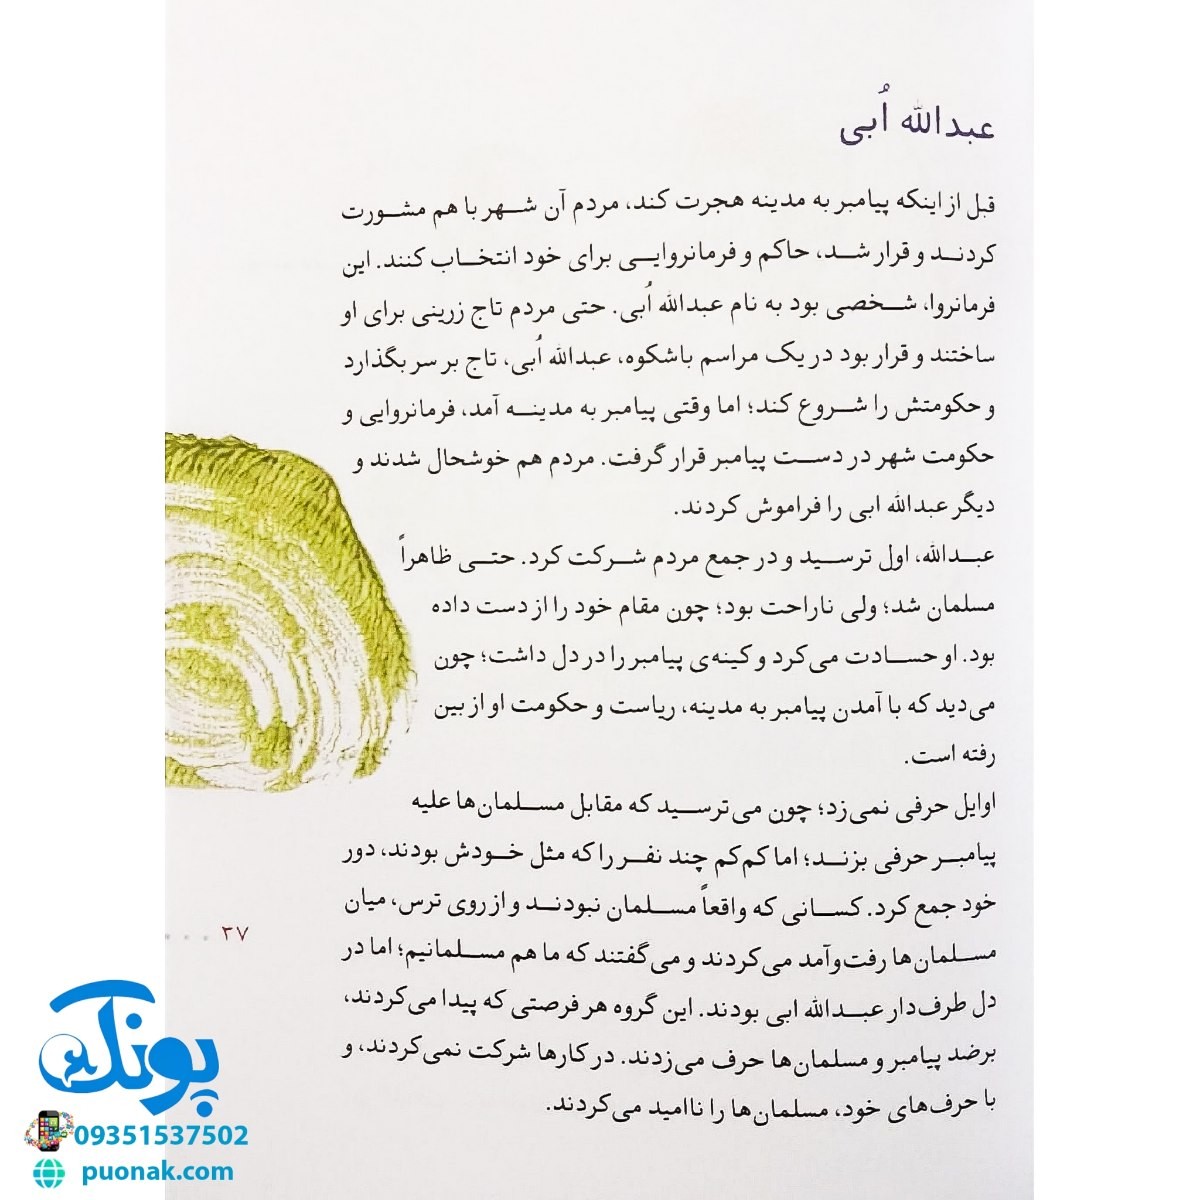 عبدالله اُبی
قبل از اینکه پیامبر به مدینه هجرت کند، مردم آن شهر با هم مشورت
کردند و قرار شد، حاکم و فرمانروایی برای خود انتخاب کنند. این
فرمانروا، شخصی بود به نام عبدالله اُبی. حتی مردم تاج زرینی برای او
ساختند و قرار بود در یک مراسم باشکوه، عبدالله اُبی، تاج بر سر بگذارد
و حکومتش را شروع کند؛ اما وقتی پیامبر به مدینه آمد، فرمانروایی و
حکومت شهر در دست پیامبر قرار گرفت. مردم هم خوشحال شدند و
دیگر عبدالله ابی را فراموش کردند.
عبدالله، اول ترسید و در جمع مردم شرکت کرد. حتی ظاهراً
مسلمان شد؛ ولی ناراحت بود؛ چون مقام خود را از دست داده
بود. او حسادت می‌کرد و کینه‌ی پیامبر را در دل داشت؛ چون
می‌دید که با آمدن پیامبر به مدینه، ریاست و حکومت او از بین
رفته است.
اوایل حرفی نمی‌زد؛ چون می‌ترسید که مقابل مسلمان‌ها علیه
پیامبر حرفی بزند؛ اما کم‌کم چند نفر را که مثل خودش بودند، دور
خود جمع کرد. کسانی که واقعاً مسلمان نبودند و از روی ترس، میان
مسلمان‌ها رفت‌وآمد می‌کردند و می‌گفتند که ما هم مسلمانیم؛ اما در
دل طرف‌دار عبدالله ابی بودند. این گروه هر فرصتی که پیدا می‌کردند،
برضد پیامبر و مسلمان‌ها حرف می‌زدند. در کارها شرکت نمی‌کردند، و
با حرف‌های خود، مسلمان‌ها را ناامید می‌کردند.
۲۷
پونک
09351537502
puonak.com